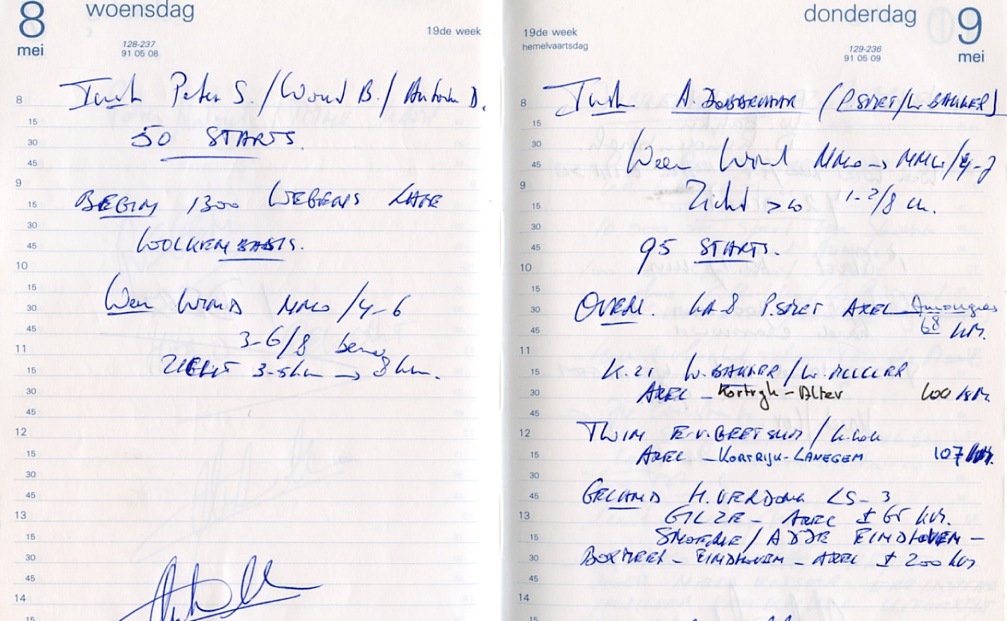 8 woensdag
mei
128-237
91 05 08
19de week
Peter S. / Woud B. / Antoin D.
50 STARTS.
BEGIN 1300 WEGENS LAGE
WOLKENBASIS.
Weer WIND NNO / 4-6
3-6/8
ZICHT 3-5km → 8 km.
8
15
30
45
9
15
30
45
10
15
30
45
11
15
30
45
12
15
30
45
13
15
30
45
14
15
19de week
hemelvaartsdag
donderdag 9
mei
129-236
91 05 09
(P.SMET/W.BAKKER)
Weer Wind
Zicht >10 1-2/8 cu.
95 STARTS.
OVERL. P.SMET AXEL
68 KM.
K.21 W.BAKKER/W.MULLER
AXEL - Kortrijk - Alter 100 KM.
TWIN
AXEL - KORTRIJK - LANEGEM 107 KM.
GELAND H.VERDONK LS-3
GILZE - AXEL ± 65 KM.
EINDHOVEN -
BOXMEER - EINDHOVEN - AXEL ± 200 KM
8
15
30
45
9
15
30
45
10
15
30
45
11
15
30
45
12
15
30
45
13
15
30
45
14
15